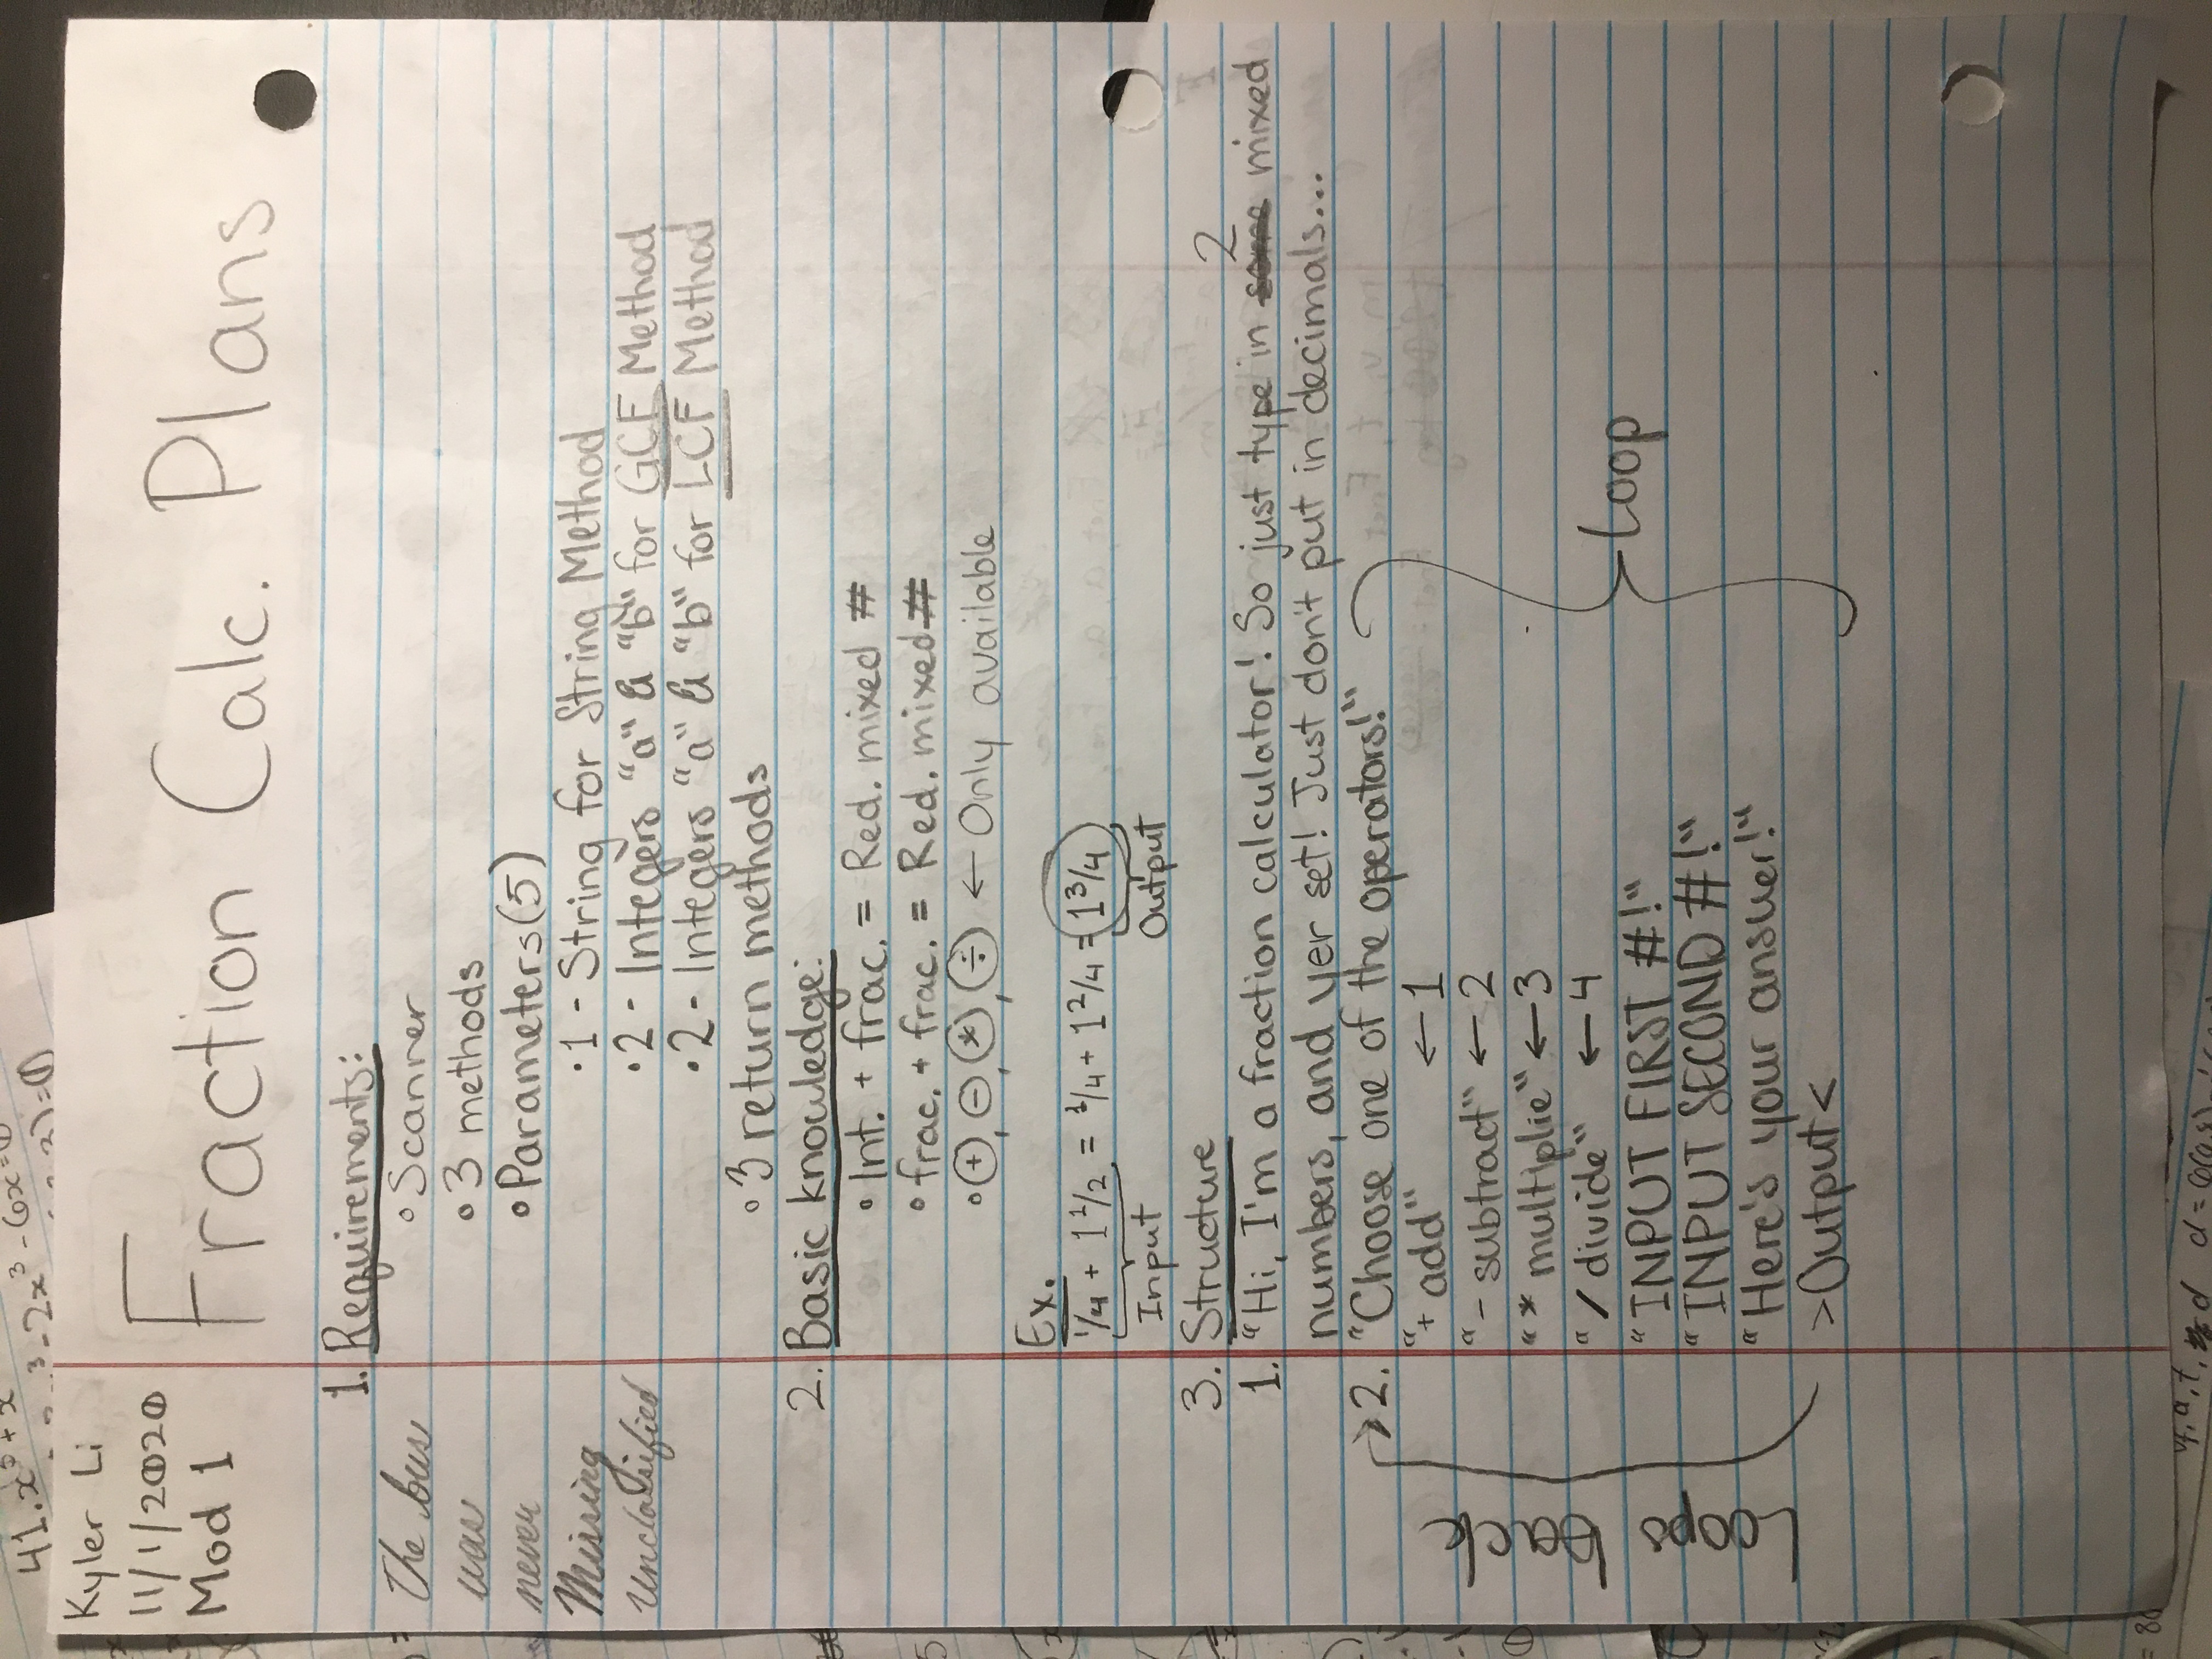 41. x⁵ + x³ - 2x³ - 6x = 0
Kyler Li
11/1/2020
Mod 1
Fraction Calc. Plans
1. Requirements:
The bus
◦ Scanner
was
◦ 3 methods
never
◦ Parameters (5)
Missing
• 1 - String for String Method
Unclassified
• 2 - Integers "a" & "b" for GCF Method
• 2 - Integers "a" & "b" for LCF Method
◦ 3 return methods
2. Basic knowledge:
◦ Int. + frac. = Red. mixed #
◦ frac. + frac. = Red. mixed #
◦ +, -, *, ÷ ← Only available
Ex.
1/4 + 1 1/2 = 1/4 + 1 2/4 = 1 3/4
Input Output
3. Structure
1. "Hi, I'm a fraction calculator! So just type in some 2 mixed
numbers, and yer set! Just don't put in decimals...
2. "Choose one of the operators!"
"+ add" ← 1
"- subtract" ← 2
"* multiplie" ← 3
"/ divide" ← 4
"INPUT FIRST #!"
"INPUT SECOND #!"
"Here's your answer!"
>Output<
Loops back
Loop
= 80
vf, a, t, d d =